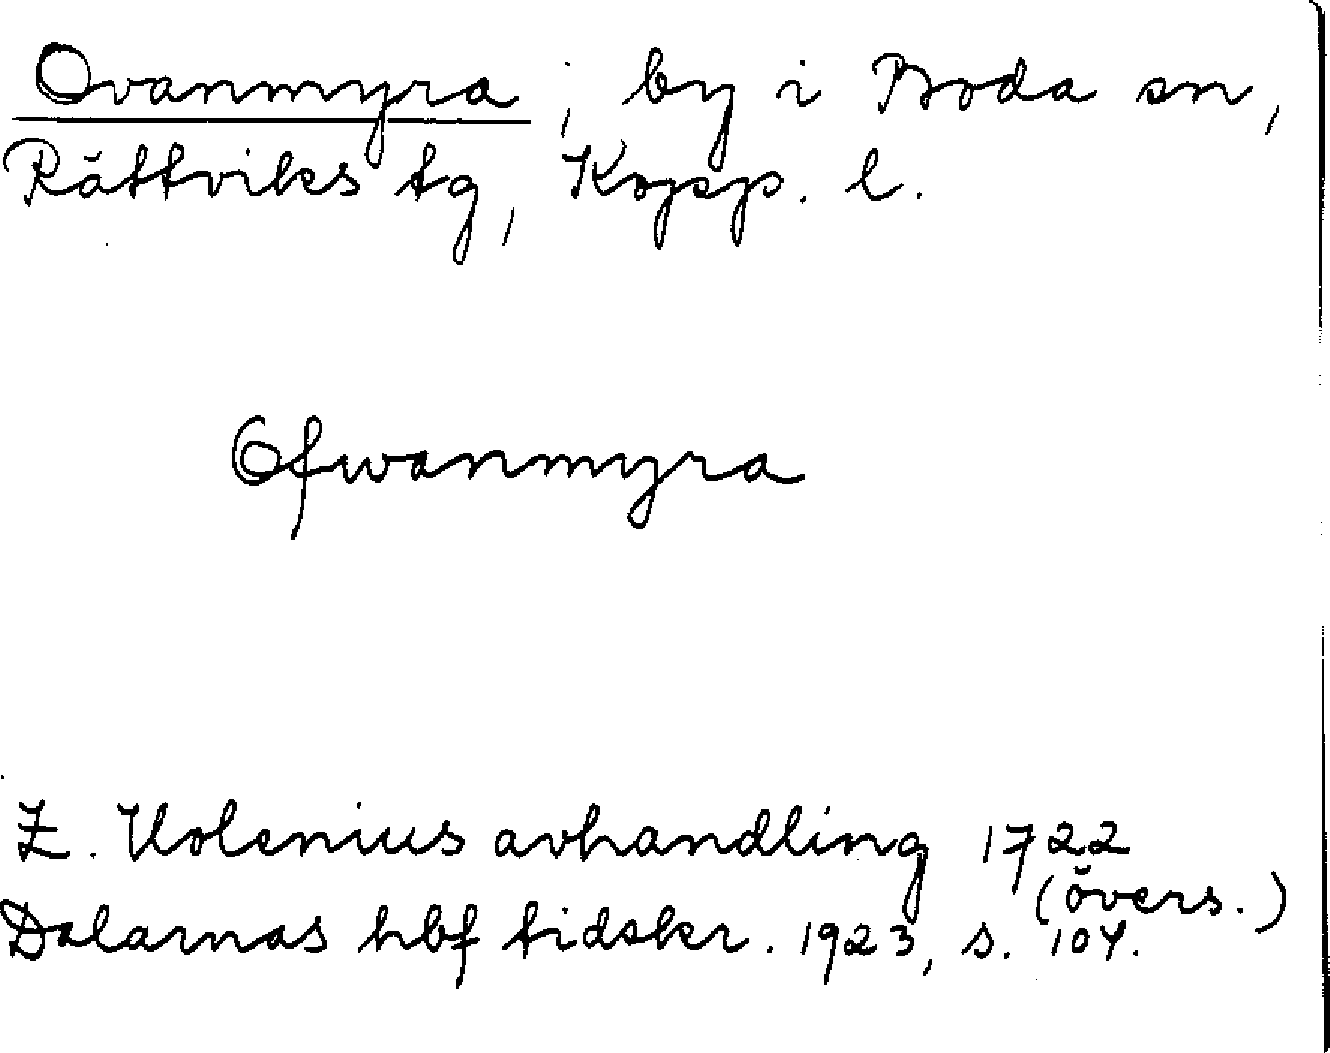 Ovanmyra, by i Boda sn,
Rättviks tg, Kopp. l.
Ofwanmyra
Z. Holenius avhandling 1722
(övers.)
Dalarnas hbf tidskr. 1923, s. 104.